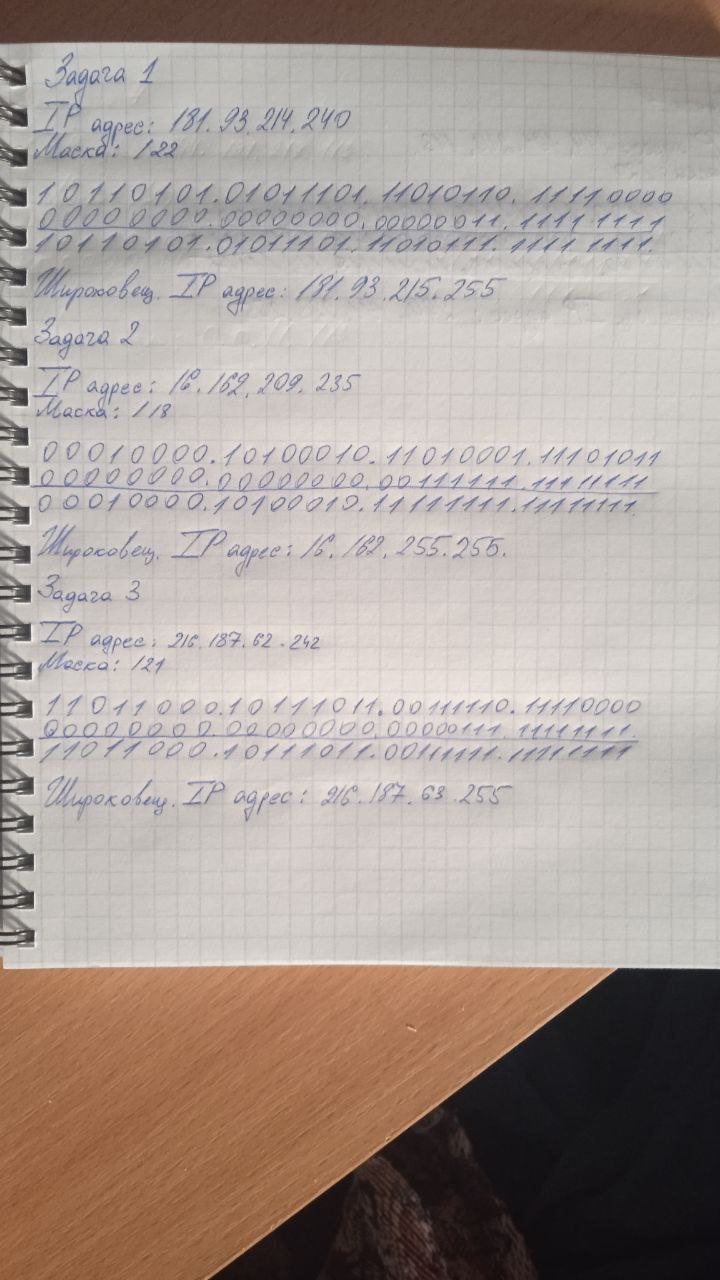 Задача 1
IP адрес: 181.93.214.240
Маска: /22
10110101.01011101.11010110.11110000
00000000.00000000.00000011.11111111
10110101.01011101.11010111.11111111.
Широковещ. IP адрес: 181.93.215.255
Задача 2
IP адрес: 16.162.209.235
Маска: /18
00010000.10100010.11010001.11101011
00000000.00000000.00111111.11111111
00010000.10100010.11111111.11111111.
Широковещ. IP адрес: 16.162.255.255.
Задача 3
IP адрес: 216.187.62.242
Маска: /21
11011000.10111011.00111110.11110000
00000000.00000000.00000111.11111111.
11011000.10111011.00111111.11111111
Широковещ. IP адрес: 216.187.63.255